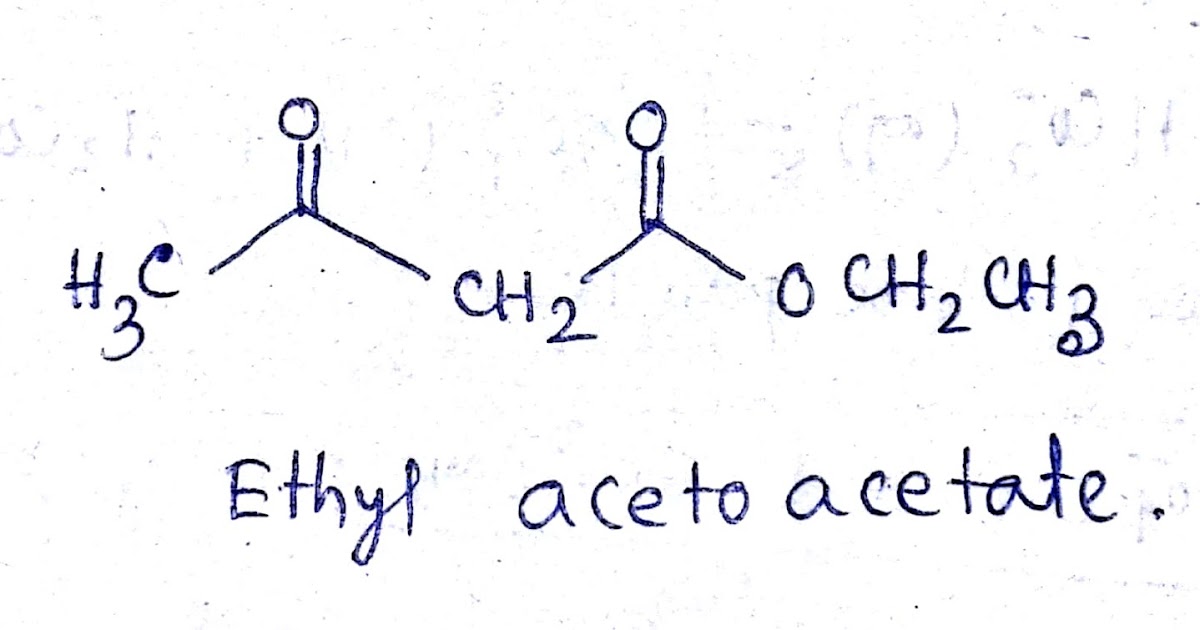 O O
H₃C CH₂ O CH₂ CH₃
Ethyl aceto acetate.